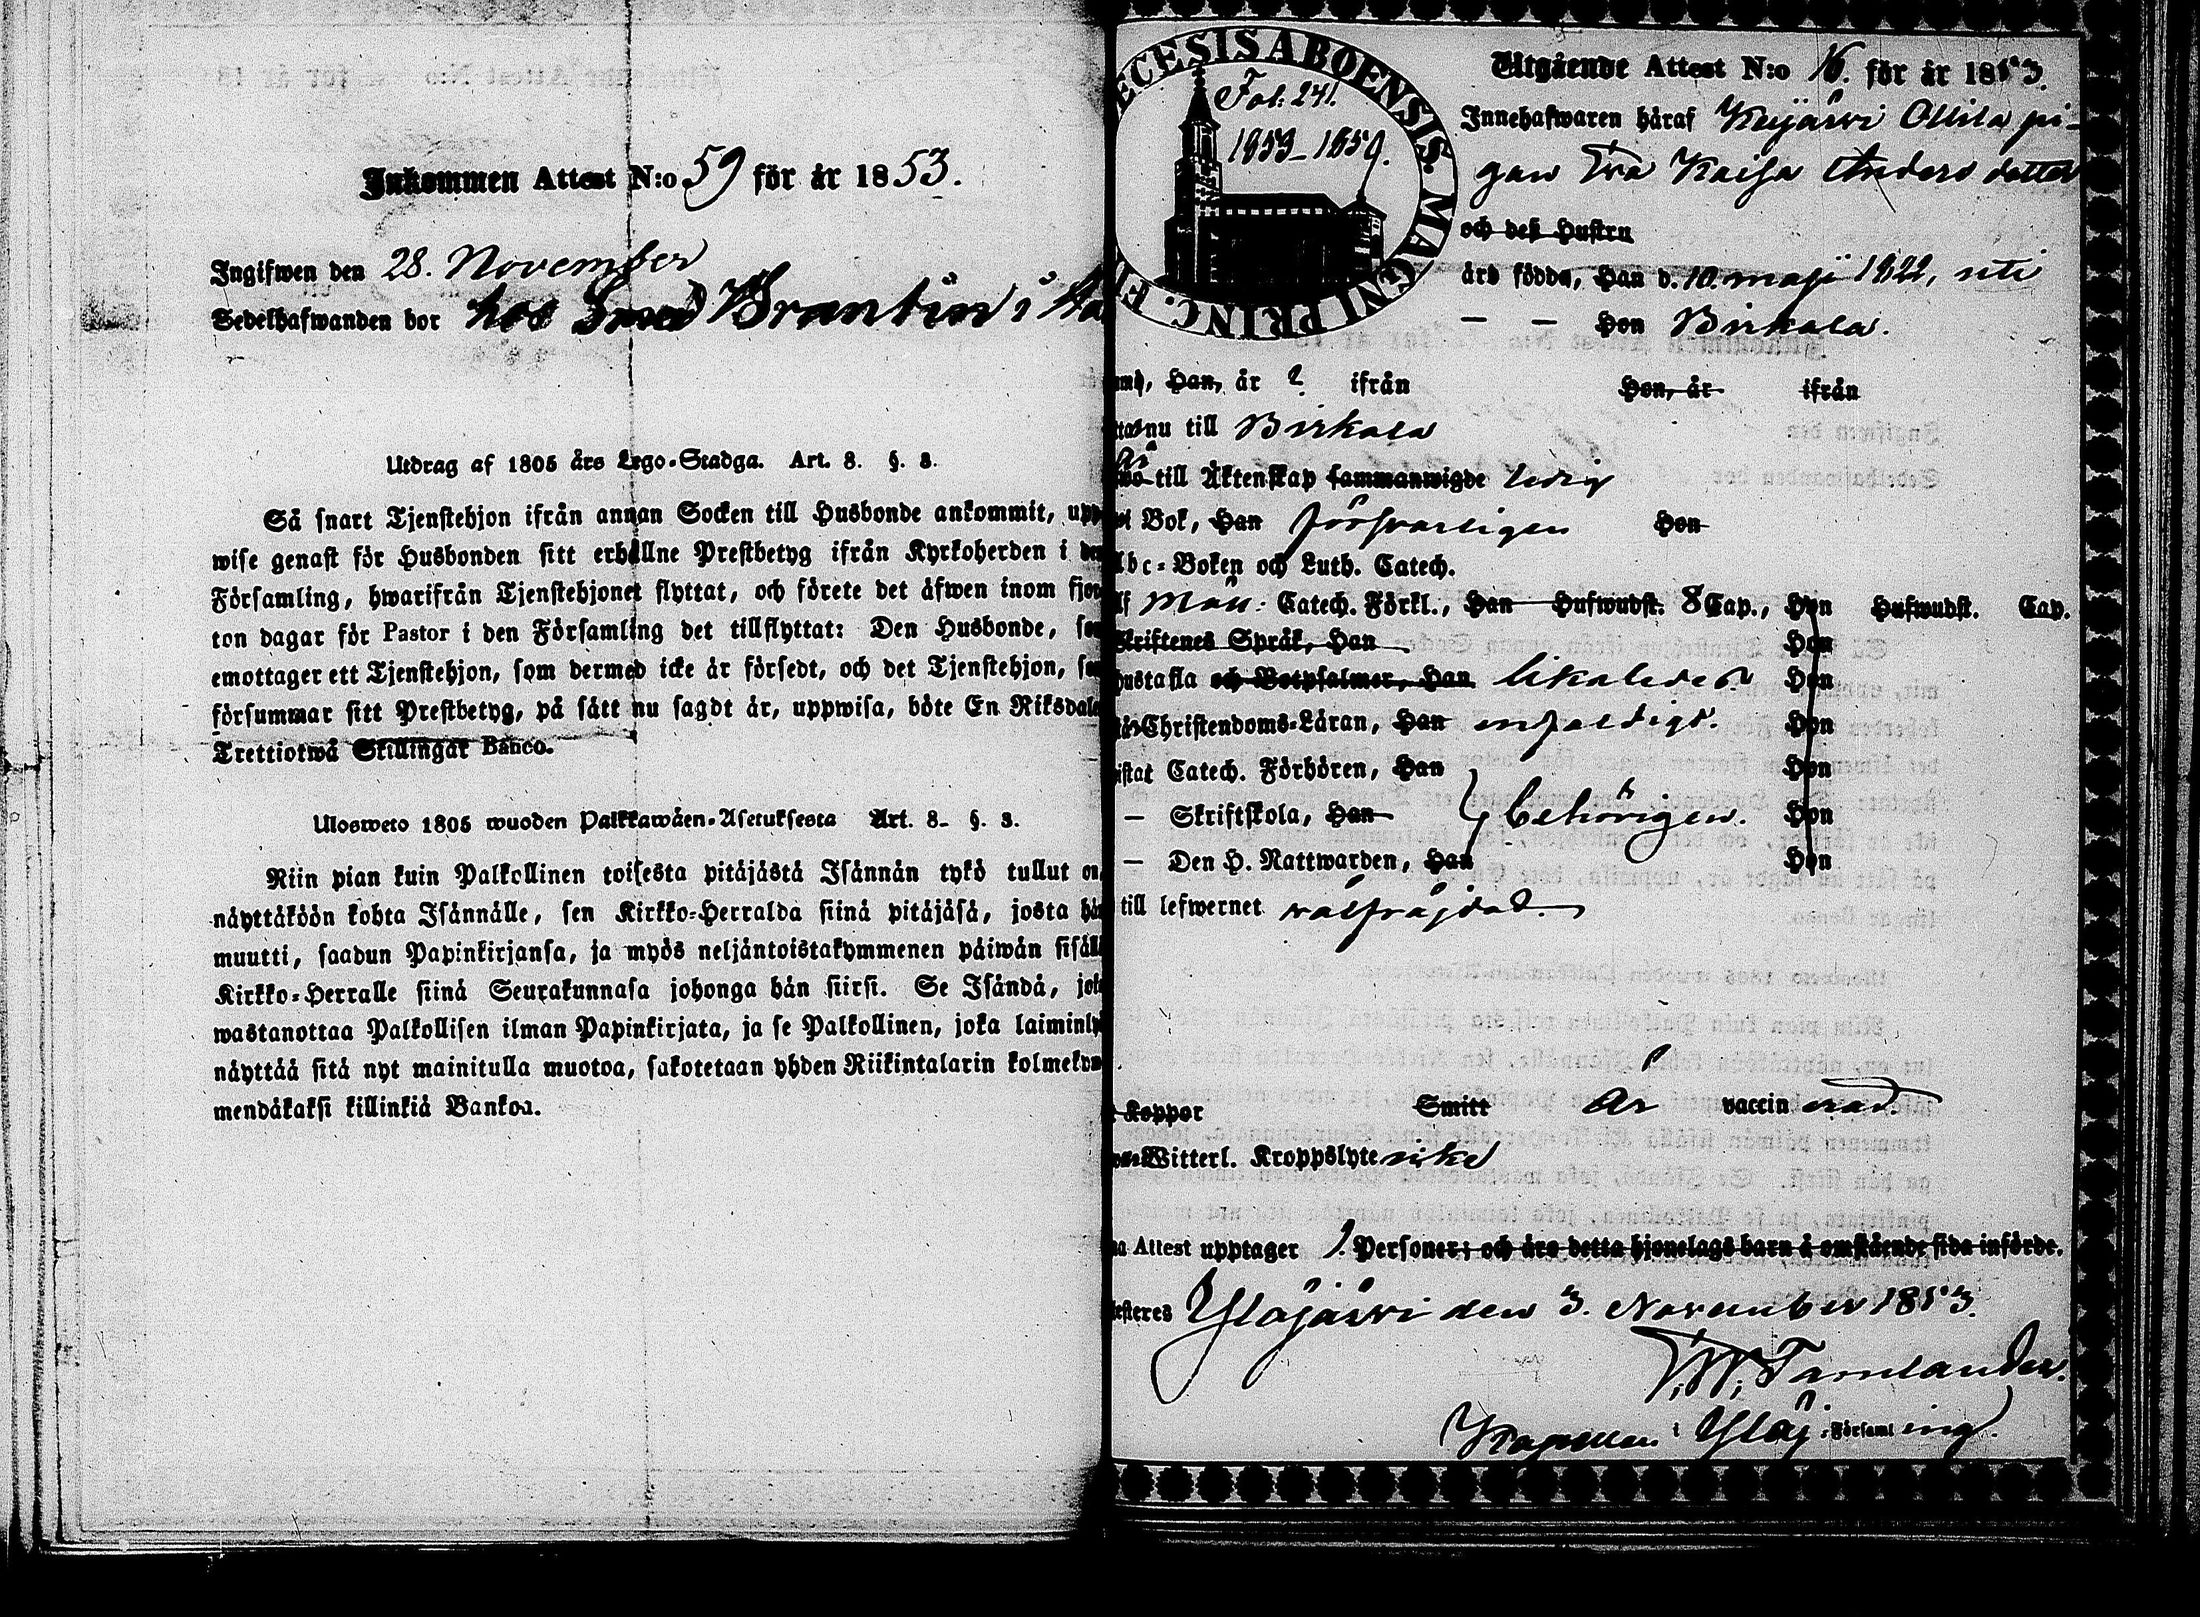 Inkommen Attest N:o 59 för år 1853.
Ingifwen den 28. November
Sedelhafwanden bor hos Smed Brantin i
Utdrag af 1805 års Lego-Stadga. Art. 8. §. 3.
Så snart Tjenstehjon ifrån annan Socken till Husbonde ankommit, upp
wise genast för Husbonden sitt erhållne Prestbetyg ifrån Kyrkoherden i den
Församling, hwarifrån Tjenstehjonet flyttat, och förete det äfwen inom fjor
ton dagar för Pastor i den Församling det tillflyttat: Den Husbonde, som
emottager ett Tjenstehjon, som dermed icke är försedt, och det Tjenstehjon, som
försummar sitt Prestbetyg, på sätt nu sagdt är, uppwisa, böte En Riksdaler
Trettiotwå Skillingar Banco.
Ulosweto 1805 wuoden Palkkawäen-Asetuksesta Art. 8. §. 3.
Niin pian kuin Palkollinen toisesta pitäjästä Isännän tykö tullut on,
näyttäköön kohta Isännälle, sen Kirkko-Herralda siinä pitäjäsä, josta hän
muutti, saadun Papinkirjansa, ja myös neljäntoistakymmenen päiwän sisällä
Kirkko-Herralle siinä Seurakunnasa johonga hän siirsi. Se Isändä, joka
wastanottaa Palkollisen ilman Papinkirjata, ja se Palkollinen, joka laiminlyö
näyttää sitä nyt mainitulla muotoa, sakotetaan yhden Riikintalarin kolmekym
mendäkaksi killinkiä Bankoa.
ECESIS ABOENSIS. MAGNI PRINC. F
Fol. 241.
1853-1859.
Utgående Attest N:o 16. för år 1853.
Innehafwaren häraf Keijärvi Ollila pi-
gan Eva Kaisa Anders dotter
och dess Hustru
äro födde, Han d. 10. maji 1822, uti
— — Hon Birkala.
Han, år ? ifrån Hon, år ifrån
nu till Birkala
Är
till Äktenskap sammanwigde ledig
Bok, Han försvarligen Hon
Abc-Boken och Luth. Catech.
Catech. Förkl., Han Hufwudst. 8 Cap., Hon Hufwudst. Cap.
Skriftenes Språk, Han Hon
Hustafla och Botpsalmer, Han likaledes. Hon
Christendoms-Läran, Han enfaldigt. Hon
Catech. Förhören, Han Hon
— Skriftskola, Han behörigen. Hon
— Den H. Nattwarden, Han Hon
till lefwernet välfräjdad.
Koppor Smitt är vaccinerad.
Witterl. Kroppslyte icke
Attest upptager 1. Personer; och äro detta hjonelags barn å omstående sida införde.
Ylöjärvi den 3. November 1853.
Kapellan i Ylöj. Församling.